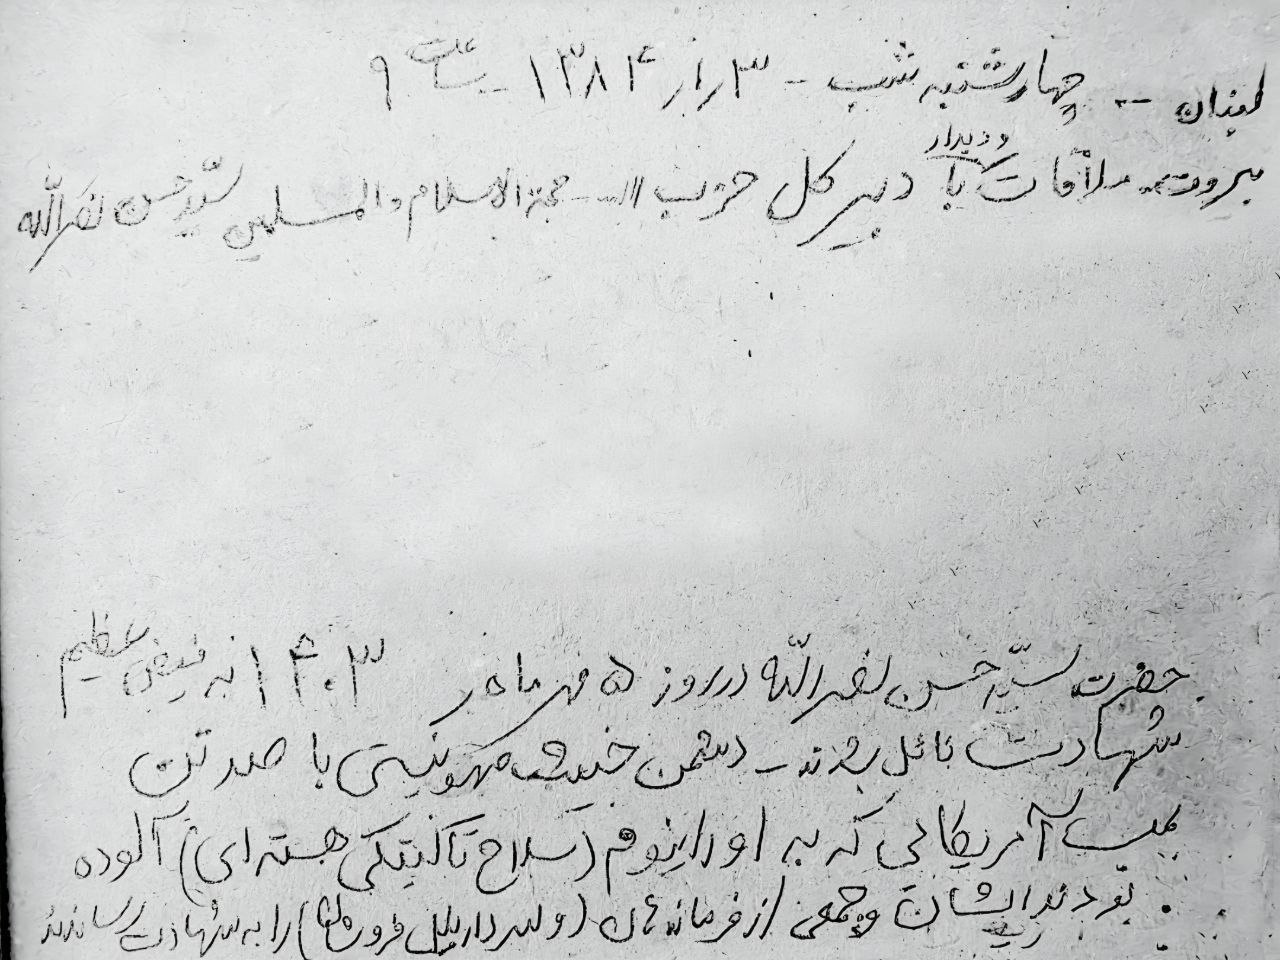 لبنان -- چهارشنبه شب - ۳ر۱ر۱۳۸۴ - ساعت ۹
بیروت ملاقات و دیدار با دبیر کل حزب الله - حجة الاسلام والمسلمین سیّد حسن نصرالله
حضرت سیّد حسن نصرالله در روز ۵ مهر ماه ۱۴۰۳ به فیض عظیم
شهادت نائل شدند - دشمن خبیث صهونیستی با صد تن
بمب آمریکائی که به اورانیوم (سلاح تاکتیکی هسته ای) آلوده
بودند ایشان و جمعی از فرمانده هان (و سردار فروشان) را به شهادت رساندند